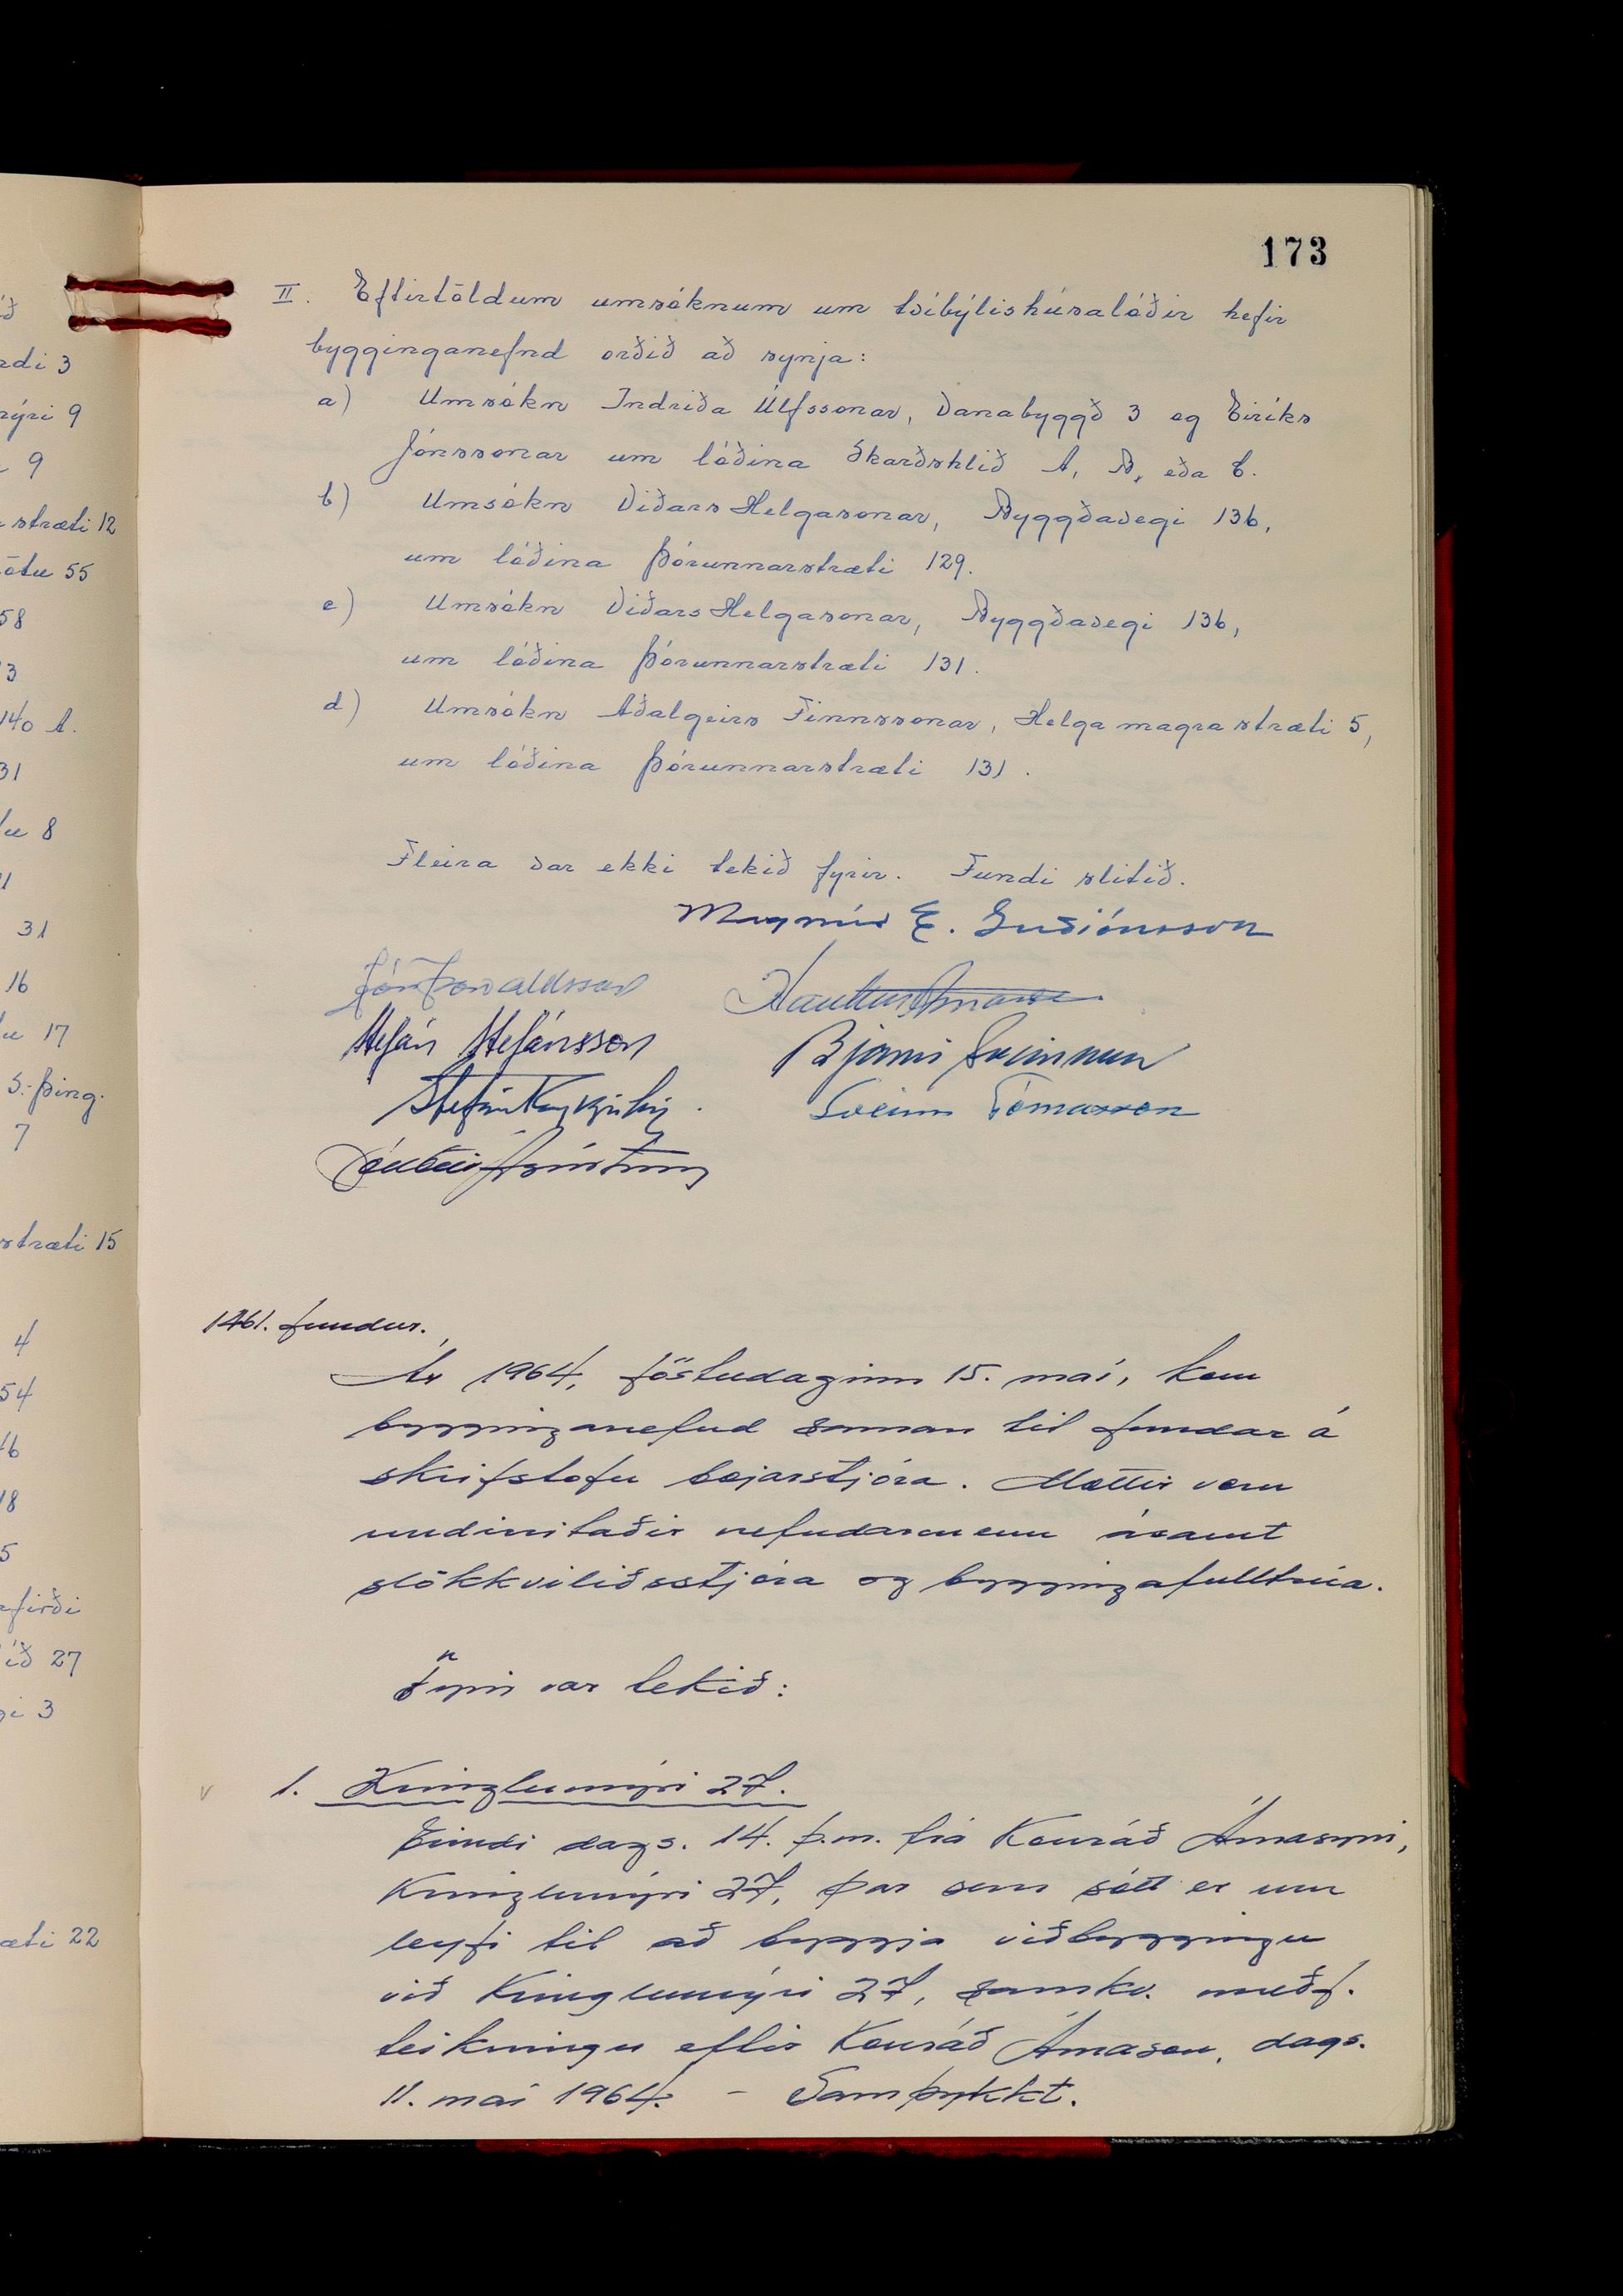 173
II. Eftirtöldum umsóknum um tvíbýlishúsalóðir hefir
bygginganefnd orðið að synja:
a) Umsókn Indriða Úlfssonar, Vanabyggð 3 og Eiríks
Jónssonar um lóðina Skarðshlíð A, B, eða C.
b) Umsókn Viðars Helgasonar, Byggðavegi 136,
um lóðina Þórunnarstræti 129.
c) Umsókn Viðars Helgasonar, Byggðavegi 136,
um lóðina Þórunnarstræti 131.
d) Umsókn Aðalgeirs Finnssonar, Helga magra stræti 5,
um lóðina Þórunnarstræti 131.
Fleira var ekki tekið fyrir. Fundi slitið.
Magnús E. Guðjónsson
Jón Þorvaldsson Haukur Árnason
Stefán Stefánsson Bjarni Sveinsson
Stefán Reykjalín. Sveinn Tómasson
1461. fundur.
Ár 1964, föstudaginn 15. maí, kom
bygginganefnd saman til fundar á
skrifstofu bæjarstjóra. Mættir voru
undirritaðir nefndarmenn ásamt
slökkviliðsstjóra og byggingafulltrúa.
Fyrir var tekið:
v 1. Kringlumýri 27.
Erindi dags. 14. þ.m. frá Konráð Árnasyni,
Kringlumýri 27, þar sem sótt er um
leyfi til að byggja viðbyggingu
við Kringlumýri 27, samkv. meðf.
teikningu eftir Konráð Árnason, dags.
11. maí 1964. - Samþykkt.
rdi 3
mýri 9
9
stræti 12
ötu 55
58
3
140 A.
31
tu 8
31
16
tu 17
S.-Þing.
7
stræti 15
4
54
46
18
5
afirði
íð 27
gi 3
æti 22